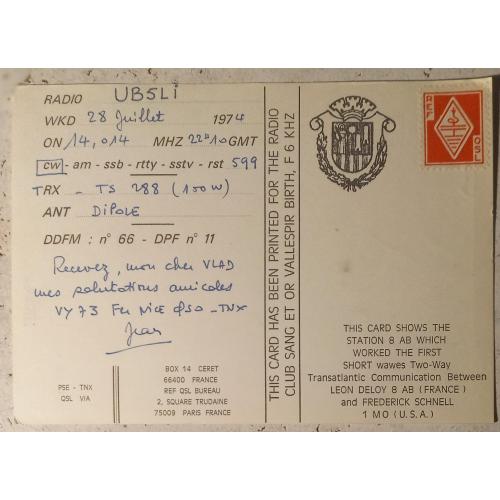 RADIO UB5LI
WKD 28 Juillet 1974
ON 14,014 MHZ 22h10 GMT
cw - am - ssb - rtty - sstv - rst 599
TRX - TS 288 (100W)
ANT DiPOLE
DDFM : n° 66 - DPF n° 11
Recevez, mon cher VLAD
mes salutations amicales
VY 73 FER NICE QSO - TNX
Jean
PSE - TNX
QSL VIA
BOX 14 CERET
66400 FRANCE
REF QSL BUREAU
2, SQUARE TRUDAINE
75009 PARIS FRANCE
THIS CARD HAS BEEN PRINTED FOR THE RADIO
CLUB SANG ET OR VALLESPIR BIRTH, F 6 KHZ
REF
QSL
THIS CARD SHOWS THE
STATION 8 AB WHICH
WORKED THE FIRST
SHORT wawes Two-Way
Transatlantic Communication Between
LEON DELOY 8 AB (FRANCE)
and FREDERICK SCHNELL
1 MO (U.S.A.)